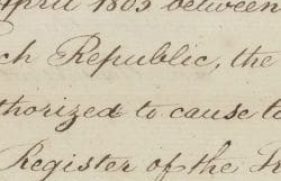 April 1803 between
ch Republic, the
thorized to cause to
Register of the Tr